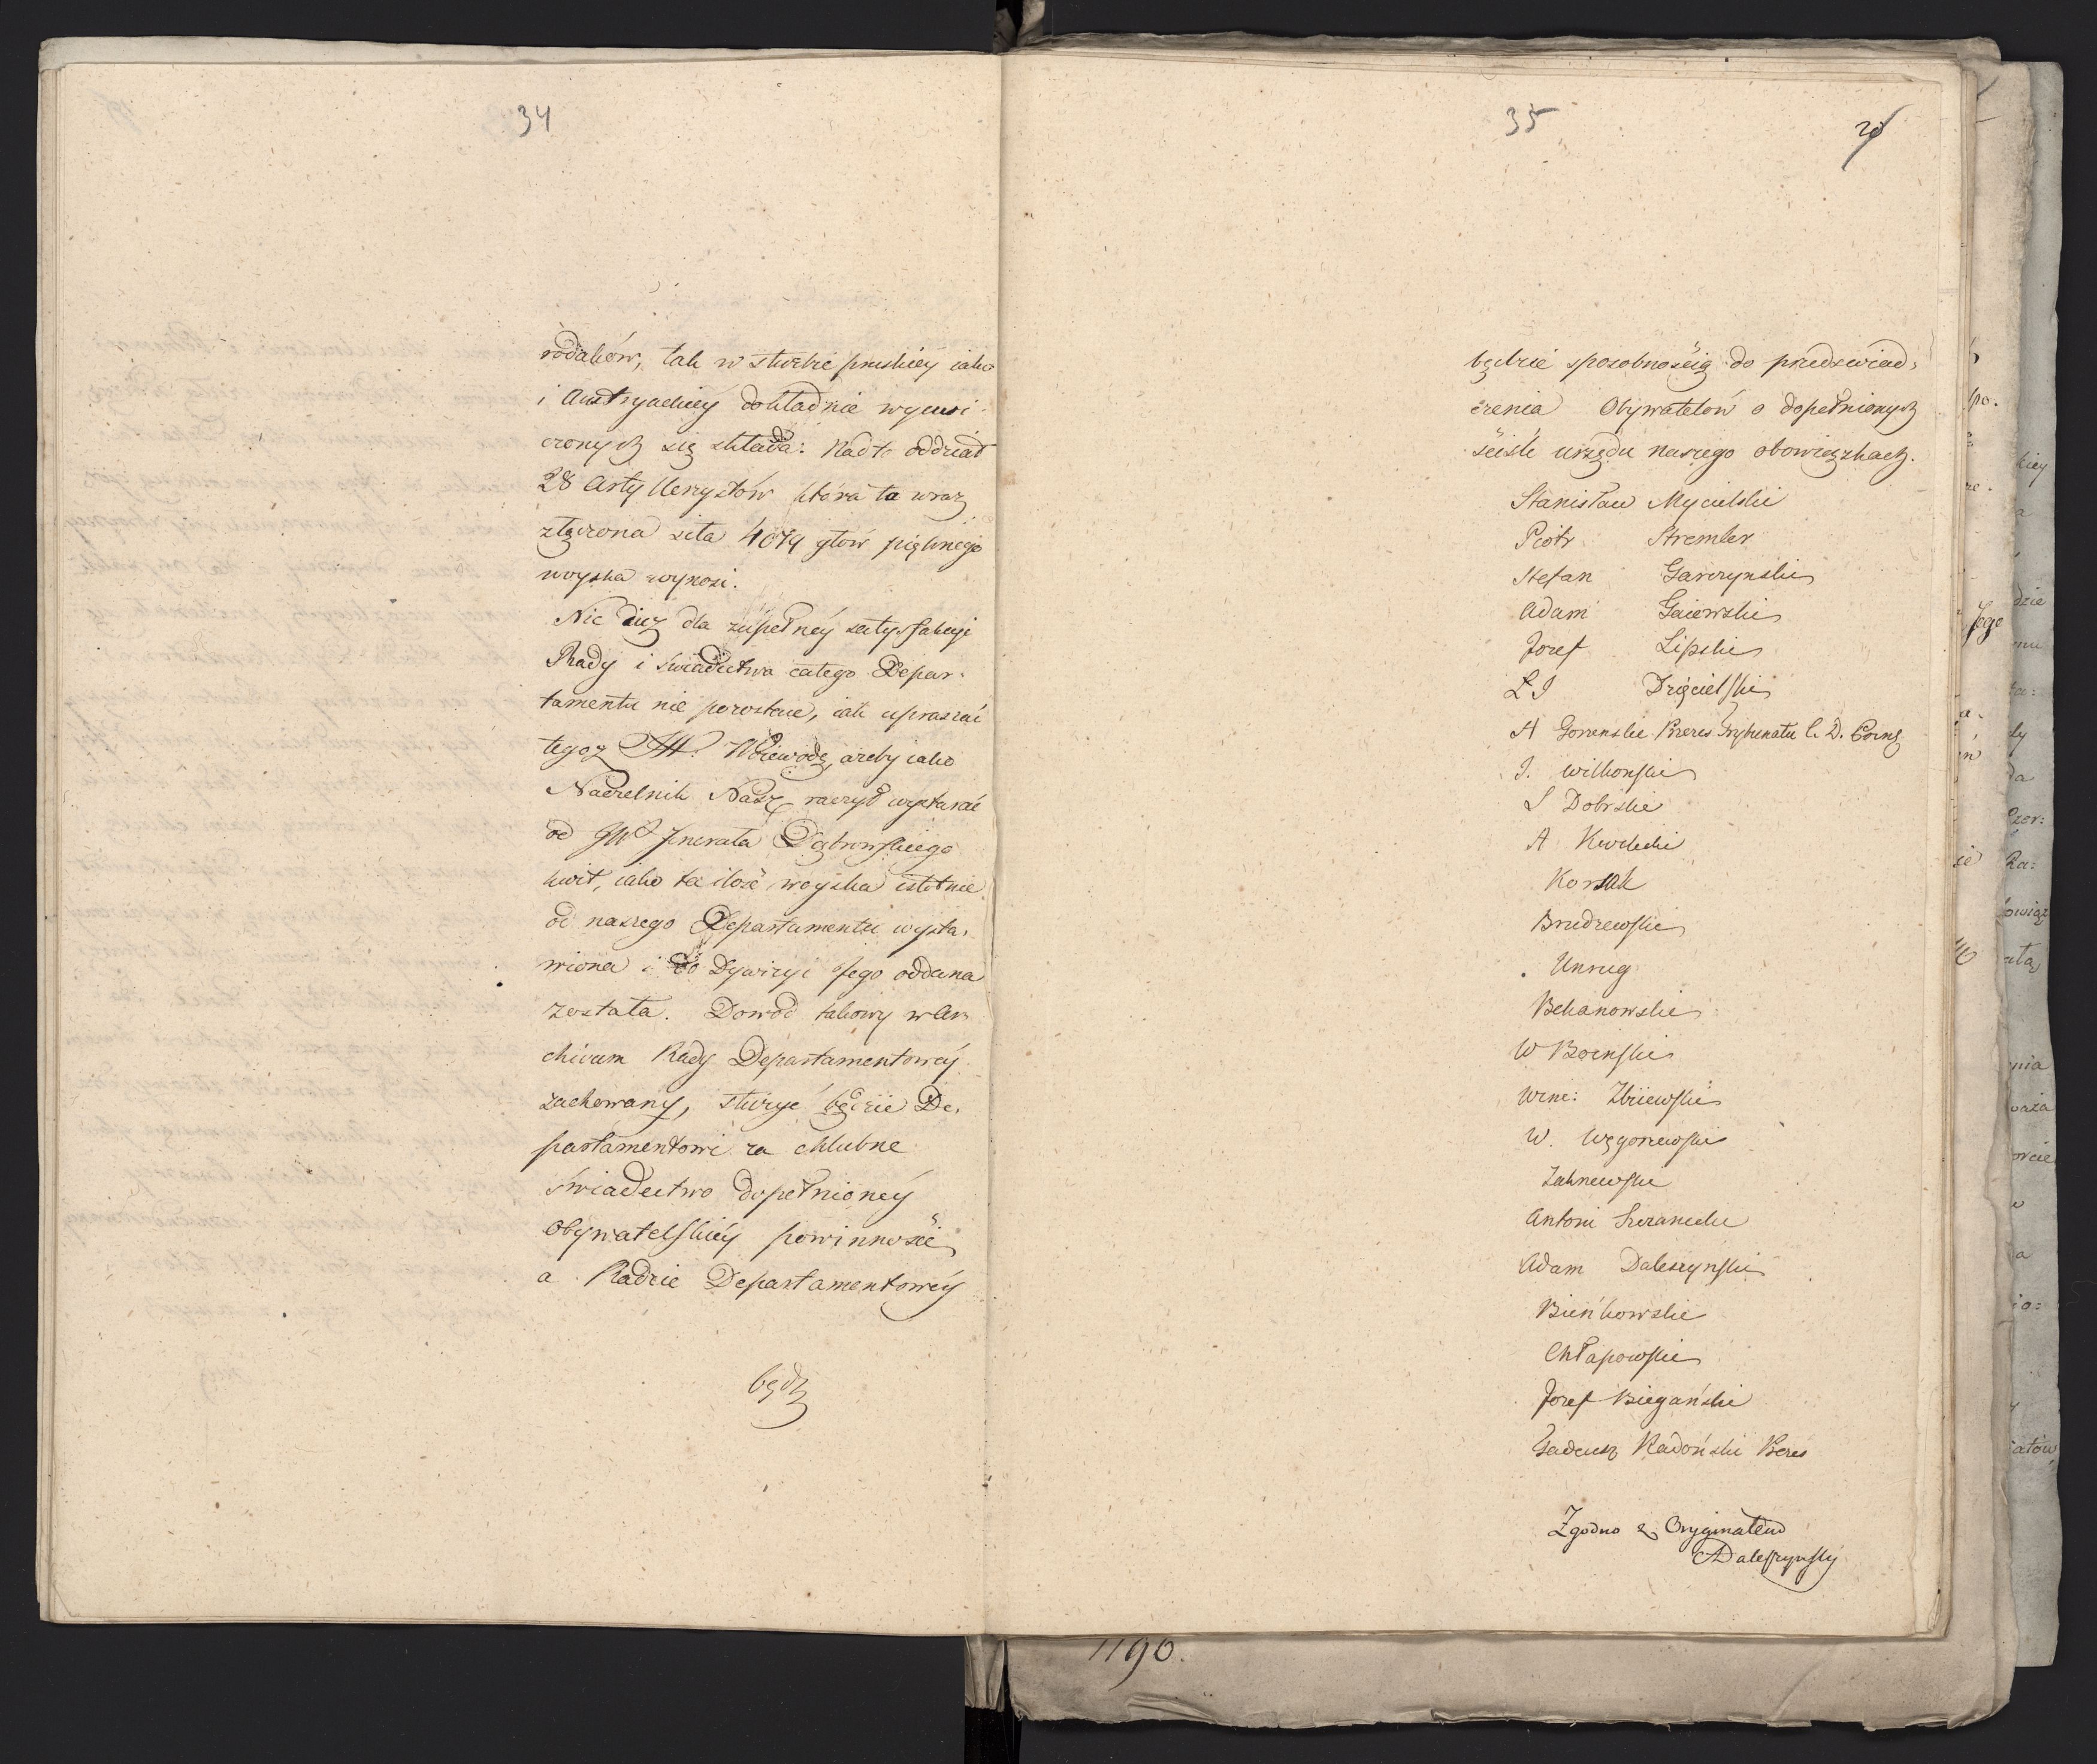 34
rodaków, tak w służbie pruskiey iako
i Austryackiey dokładnie wyćwi-
czonych się składa: Nadto oddział
28 Artyllerzystów która to wraz
złączona siła 4079 głów pięknego
woyska wynosi.
Nic iuż dla zupełnéy satysfakcyi
Rady i świadectwa całego Depar-
tamentu nie pozostaie, iak upraszać
tegoż JW. Woiewodę, ażeby iako
Naczelnik Nasz raczył wystarać
od JW Jenerała Dąbrowskiego
kwit, iako ta ilość woyska istotnie
od naszego Departamentu wysta-
wiona i do Dywizyi Jego oddana
została. Dowód takowy w Ar-
chivum Rady Departamentowéy
zachowany, służyć będzie De-
partamentowi za chlubne
świadectwo dopełnionéy
Obywatelskiéy powinności
a Radzie Departamentowéy
będz
35
20
będzie sposobnością do przeświad-
czenia Obywatelów o dopełnionych
ściśle urzędu naszego obowiązkach.
Stanisław Mycielski
Piotr Stremler
Stefan Garczynski
Adam Gaiewski
Jozef Lipski
L I Dzięcielski
A Gorzenski Prezes Trybunału C. D. Pozn
J. Wilkonski
S Dobrski
A Kwilecki
Korsak
Brudzewski
Unrug
Bekanowski
W Bozenski
Winc: Zbiiewski
W. Węgorzewski
Zakrzewski
Antoni Szczaniecki
Adam Daleszynski
Bieńkowski
Chłapowski
Jozef Biegański
Tadeusz Radoński Prezes
Zgodno z Oryginałem
ADaleszynsky
1190.